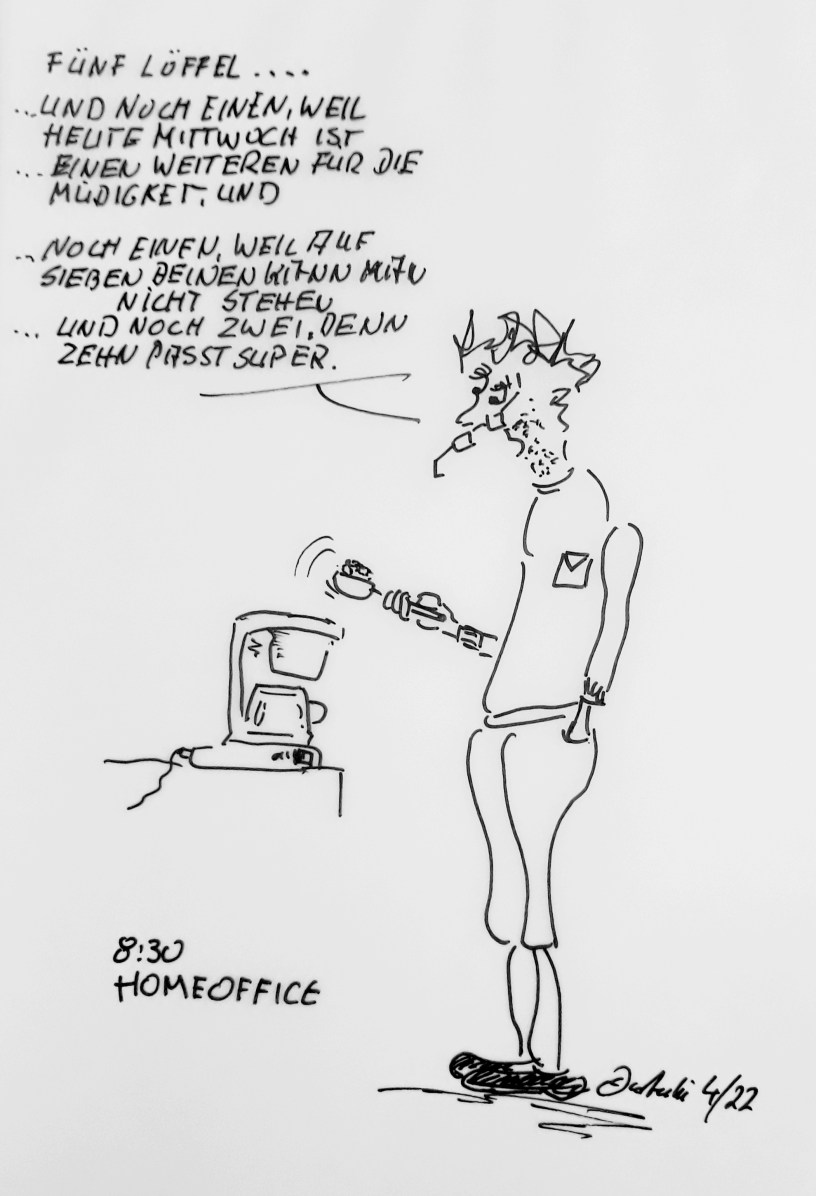 FÜNF LÖFFEL ....
...UND NOCH EINEN, WEIL
HEUTE MITTWOCH IST
... EINEN WEITEREN FÜR DIE
MÜDIGKET, UND
.. NOCH EINEN, WEIL AUF
SIEBEN BEINEN KANN MAN
NICHT STEHEN
... UND NOCH ZWEI, DENN
ZEHN PASST SUPER.
8:30
HOMEOFFICE
4/22